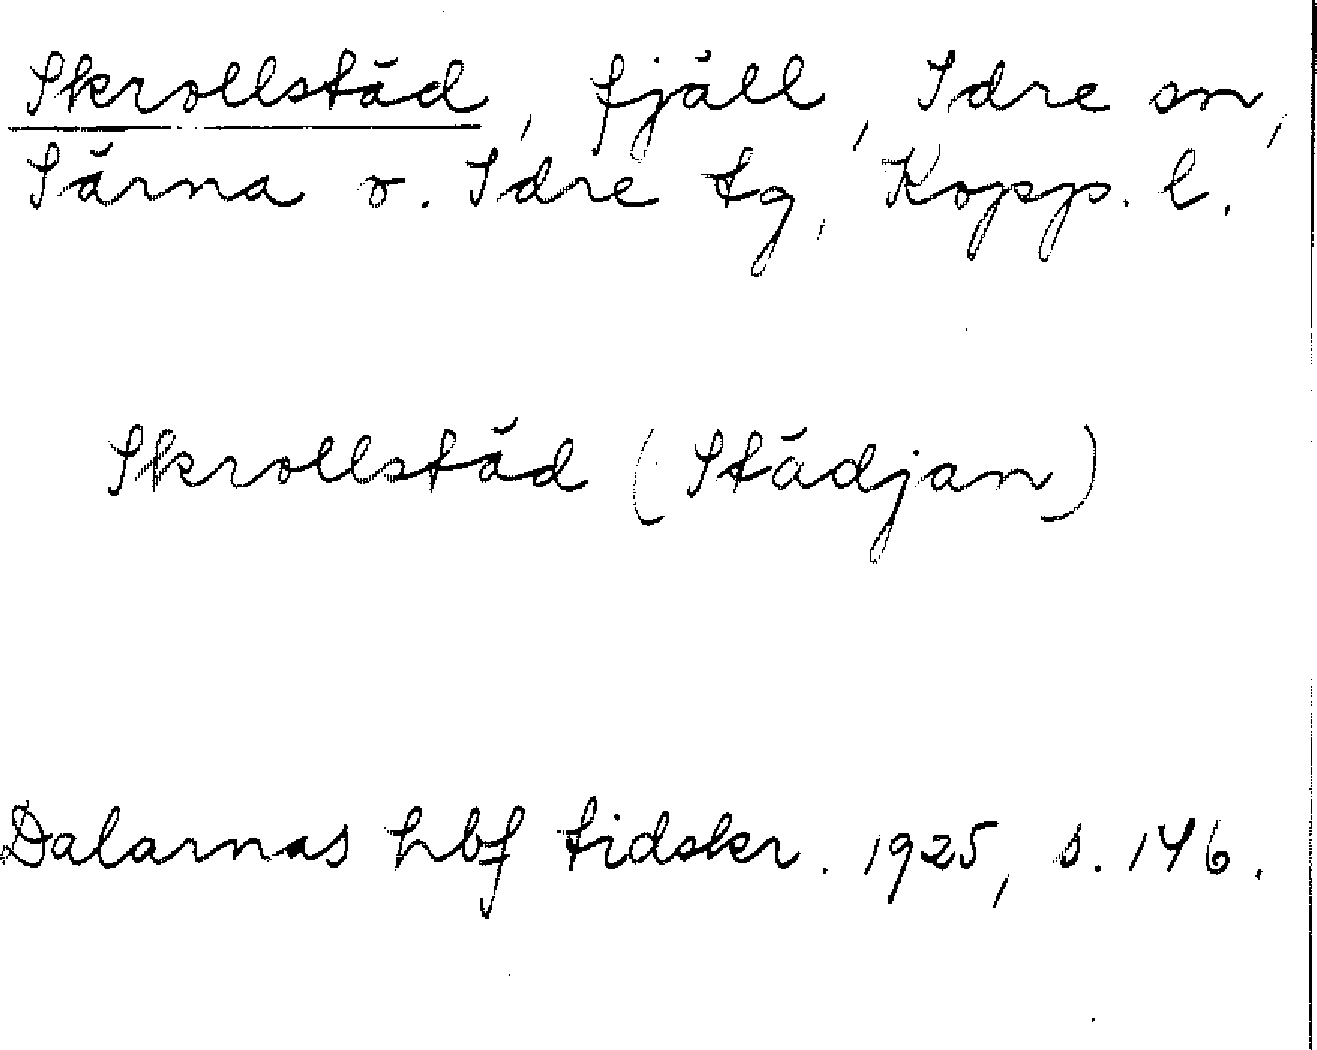 Skrollstäd, fjäll, Idre sn,
Särna o. Idre tg, Kopp. l.
Skrollstäd (Städjan)
Dalarnas hbf tidskr. 1925, s. 146.